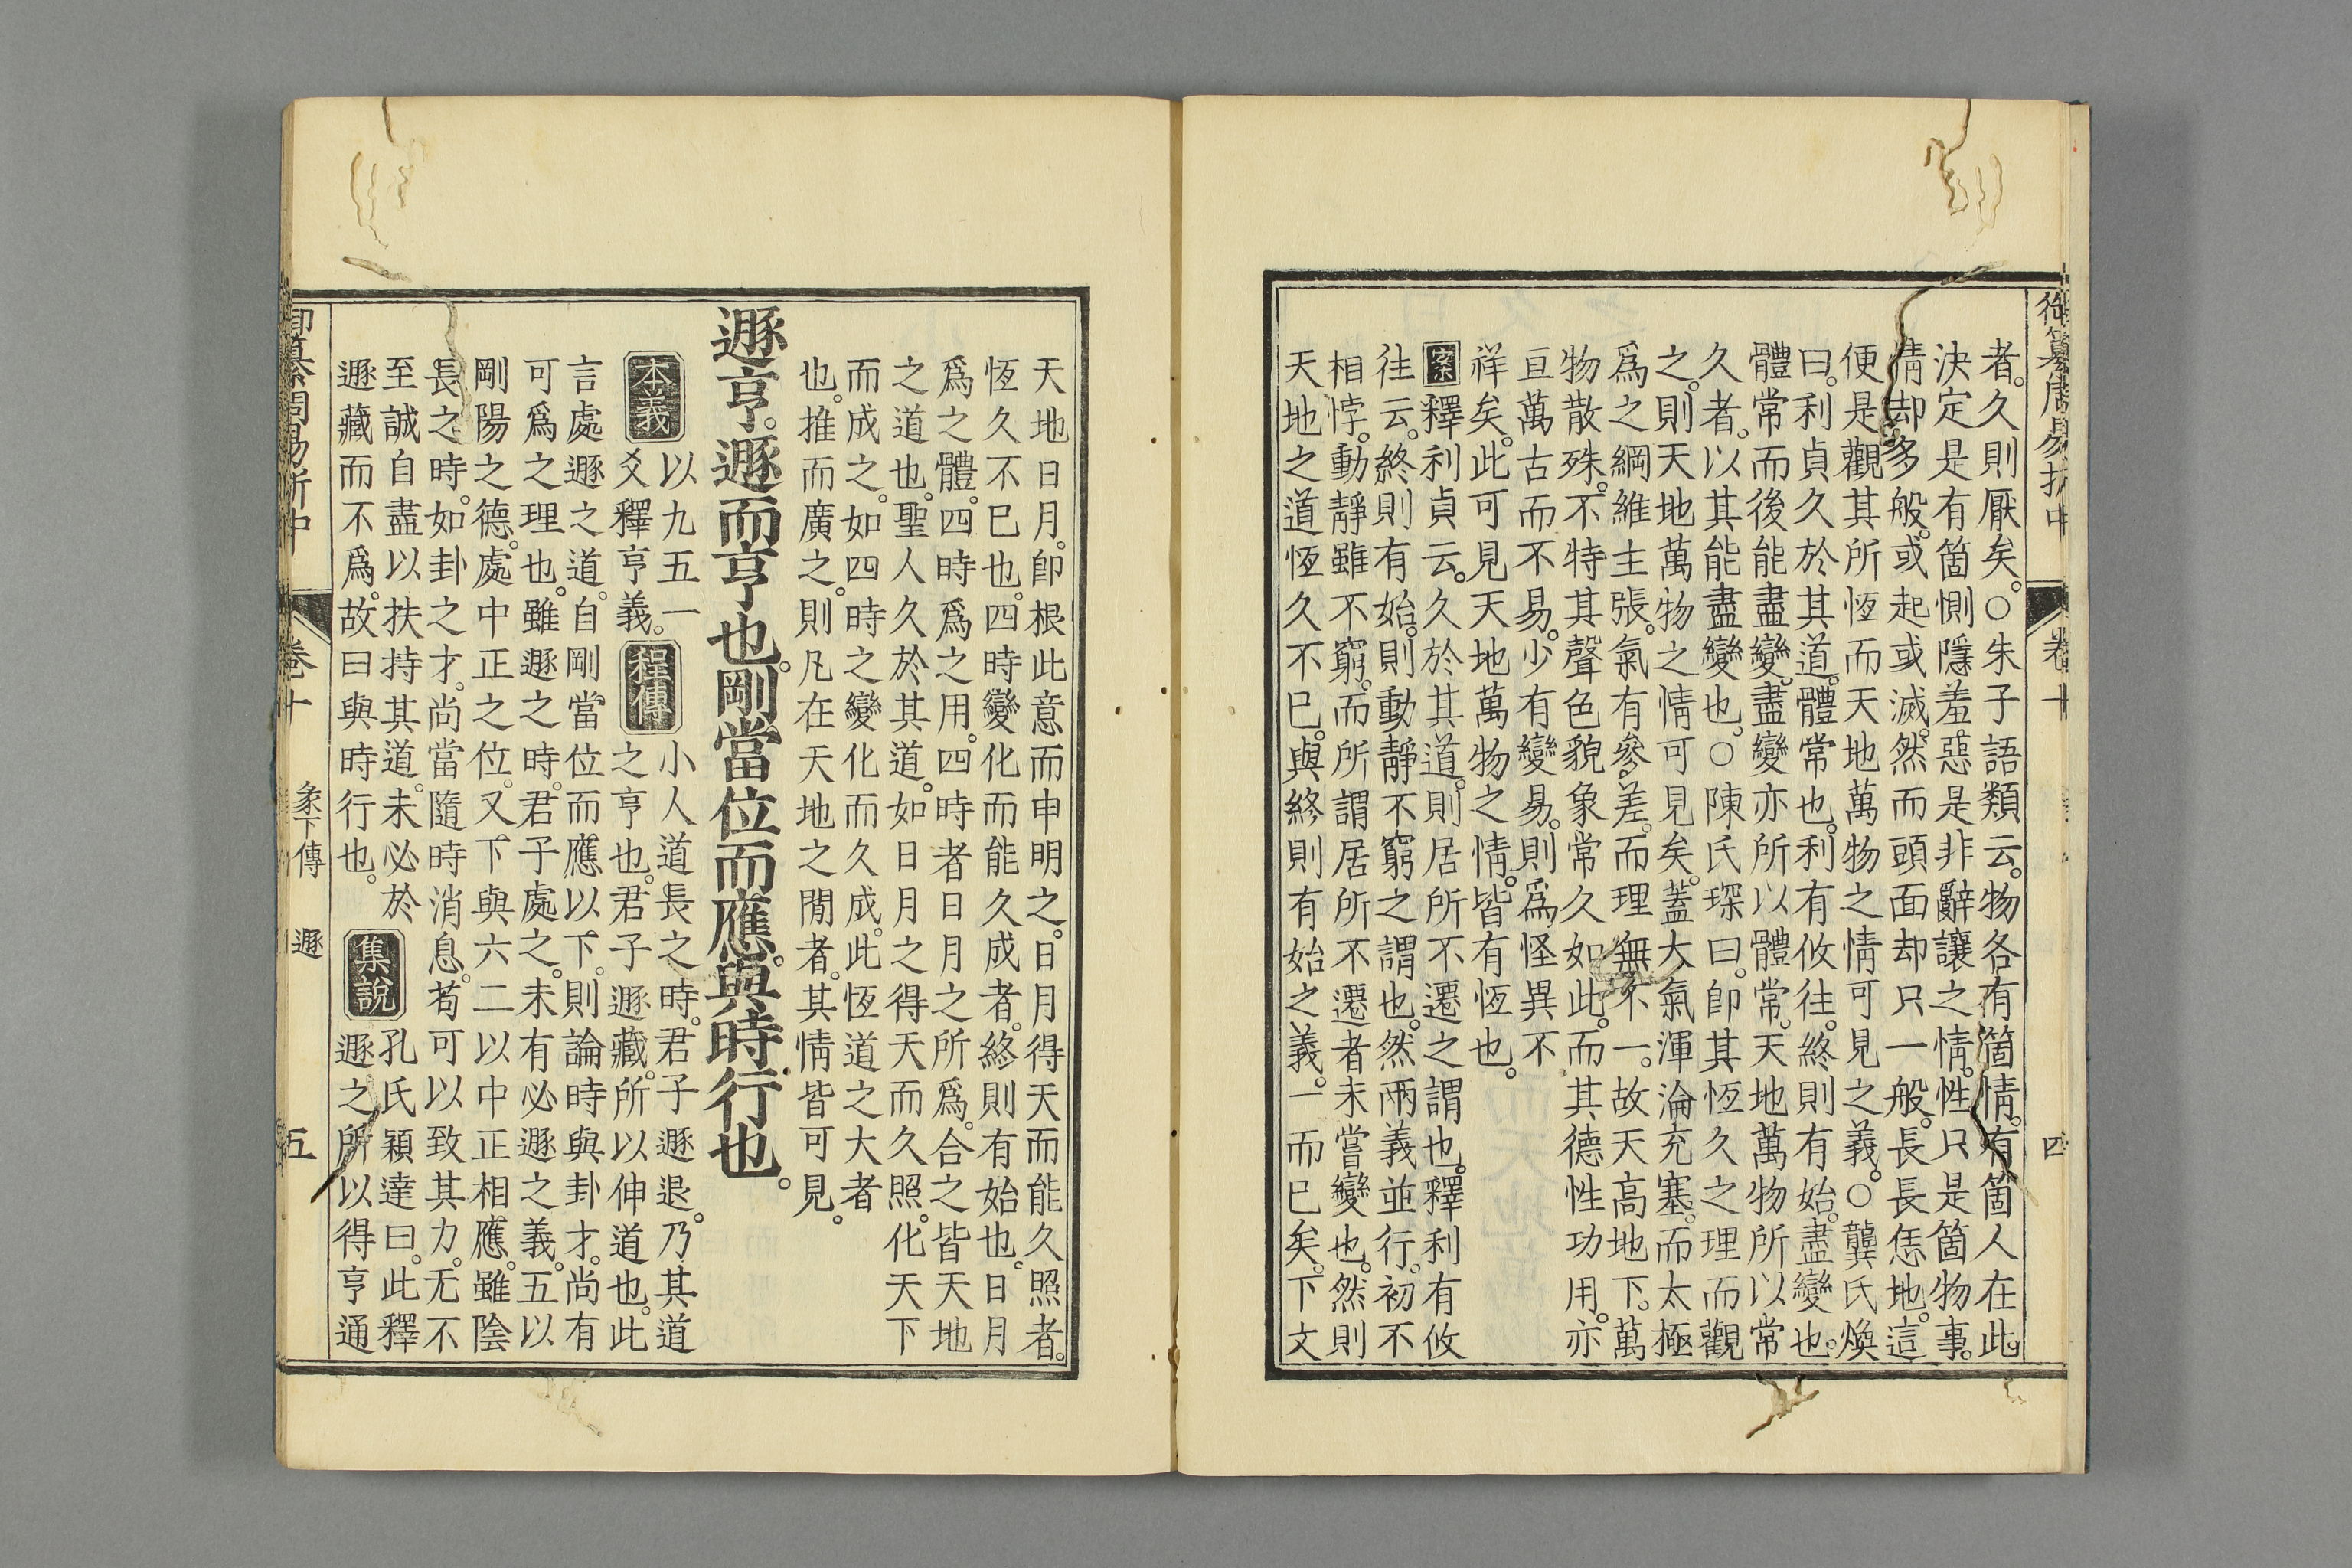 御纂周易折中 卷十 四
者。久則厭矣。○朱子語類云。物各有箇情。有箇人在此。
決定是有箇惻隱羞惡是非辭讓之情。性只是箇物事。
情却多般。或起或滅。然而頭面却只一般。長長恁地。這
便是觀其所恆而天地萬物之情可見之義。○龔氏煥
曰。利貞久於其道。體常也。利有攸往。終則有始。盡變也。
體常而後能盡變。盡變亦所以體常。天地萬物所以常
久者。以其能盡變也。○陳氏琛曰。卽其恆久之理而觀
之。則天地萬物之情可見矣。蓋大氣渾淪充塞。而太極
爲之綱維主張。氣有參差。而理無不一。故天高地下。萬
物散殊。不特其聲色貌象常久如此。而其德性功用。亦
亘萬古而不易。少有變易。則爲怪異不
祥矣。此可見天地萬物之情。皆有恆也。
案 釋利貞云。久於其道。則居所不遷之謂也。釋利有攸
往云。終則有始。則動靜不窮之謂也。然兩義並行。初不
相悖。動靜雖不窮。而所謂居所不遷者未嘗變也。然則
天地之道恆久不已。與終則有始之義。一而已矣。下文
天地日月。卽根此意而申明之。日月得天而能久照者。
恆久不已也。四時變化而能久成者。終則有始也。日月
爲之體。四時爲之用。四時者日月之所爲。合之皆天地
之道也。聖人久於其道。如日月之得天而久照。化天下
而成之。如四時之變化而久成。此恆道之大者
也。推而廣之。則凡在天地之閒者。其情皆可見。
遯亨。遯而亨也。剛當位而應。與時行也。
本義 以九五一
爻釋亨義。
程傳 小人道長之時。君子遯退。乃其道
之亨也。君子遯藏。所以伸道也。此
言處遯之道。自剛當位而應以下。則論時與卦才。尚有
可爲之理也。雖遯之時。君子處之。未有必遯之義。五以
剛陽之德。處中正之位。又下與六二以中正相應。雖陰
長之時。如卦之才。尚當隨時消息。苟可以致其力。无不
至誠自盡以扶持其道。未必於
遯藏而不爲。故曰與時行也。
集說 孔氏穎達曰。此釋
遯之所以得亨通
御纂周易折中 卷十 彖下傳 遯 五